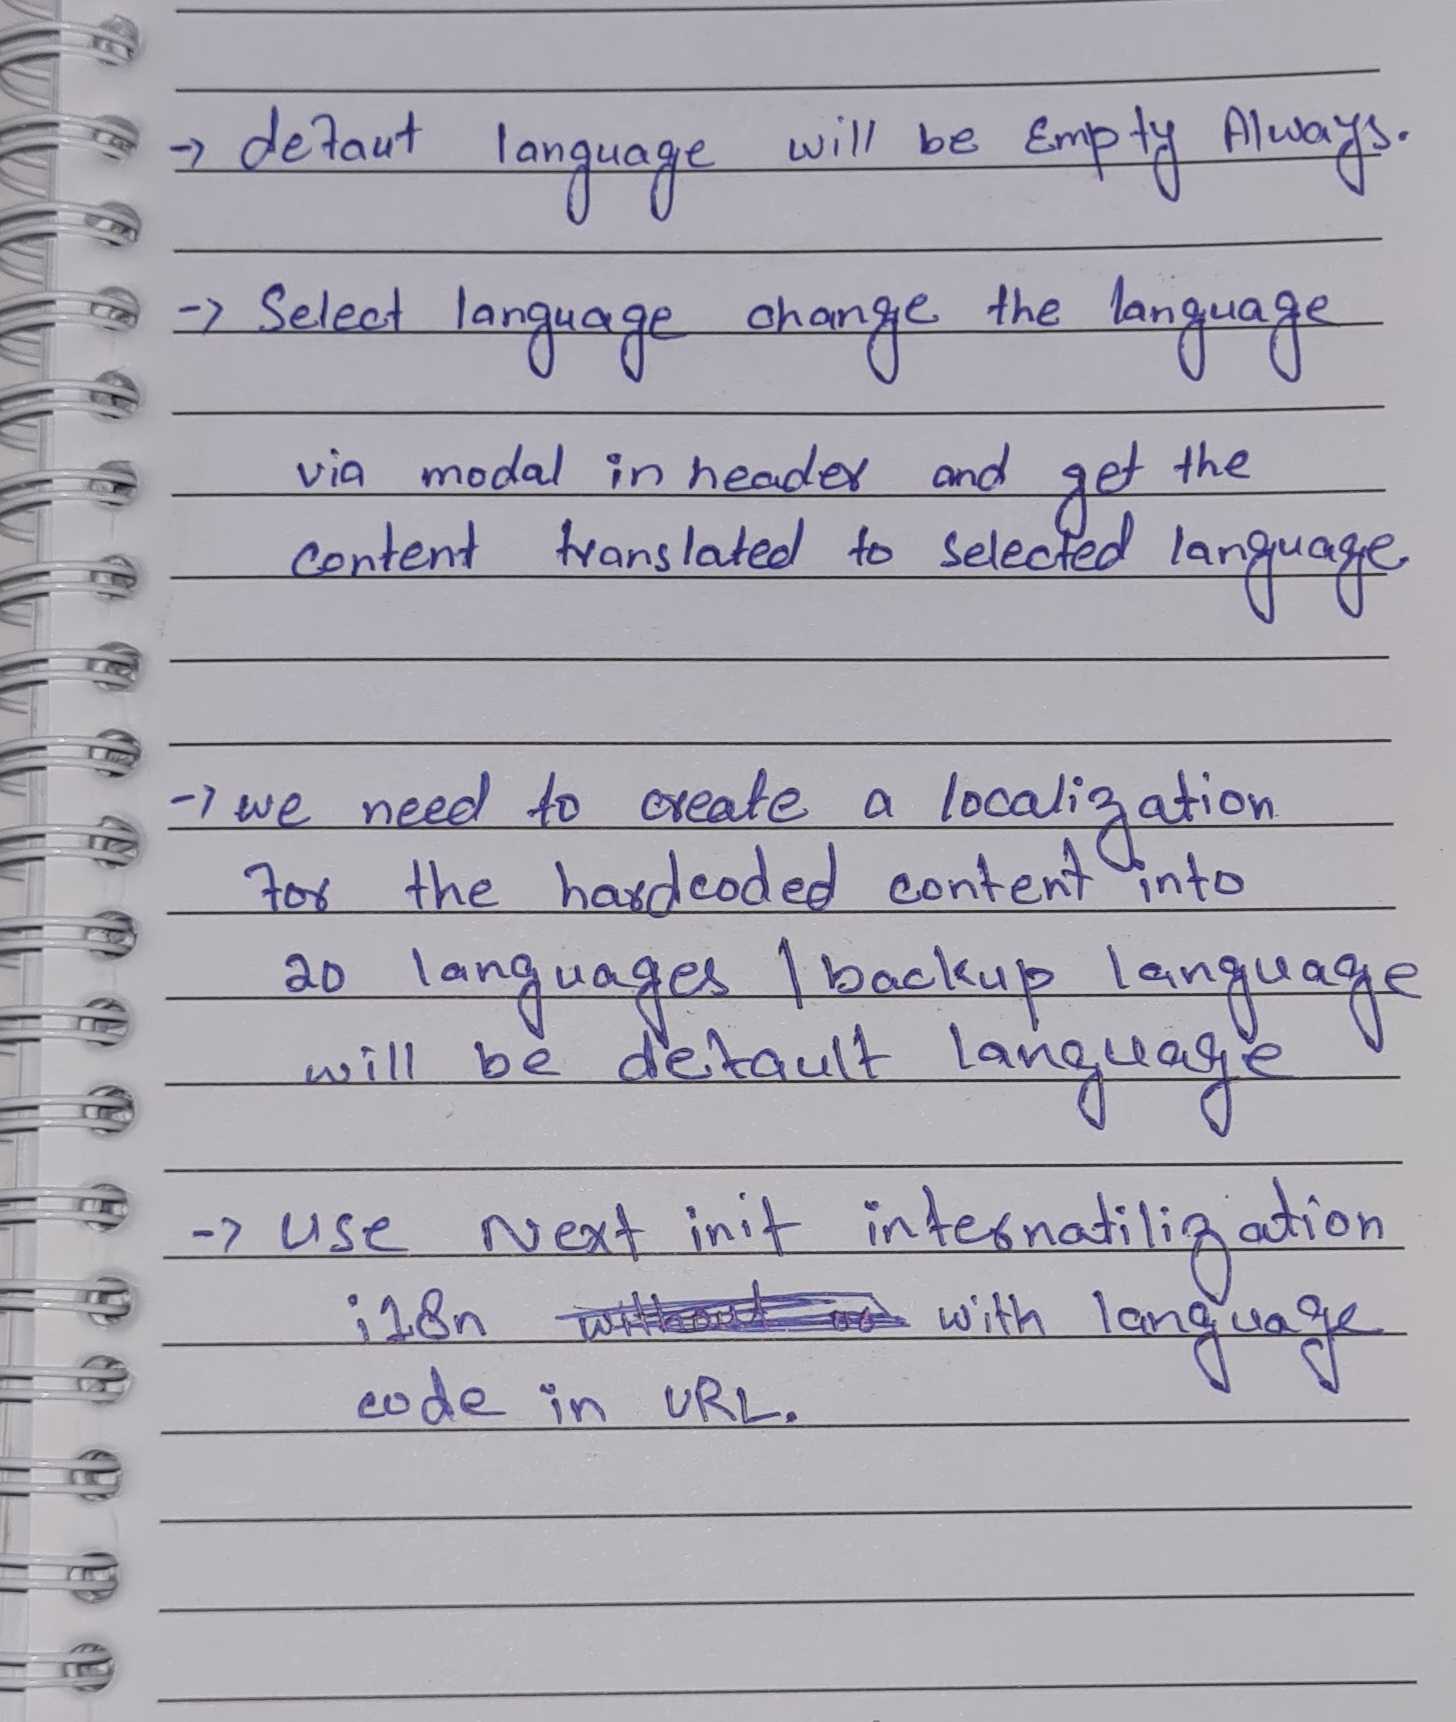 -> defaut language will be Empty Always.
-> Select language change the language
via modal in header and get the
content translated to selected language.
-> we need to create a localization
for the hardcoded content into
20 languages | backup language
will be default language
-> use Next init internatilization
i18n with language
code in URL.